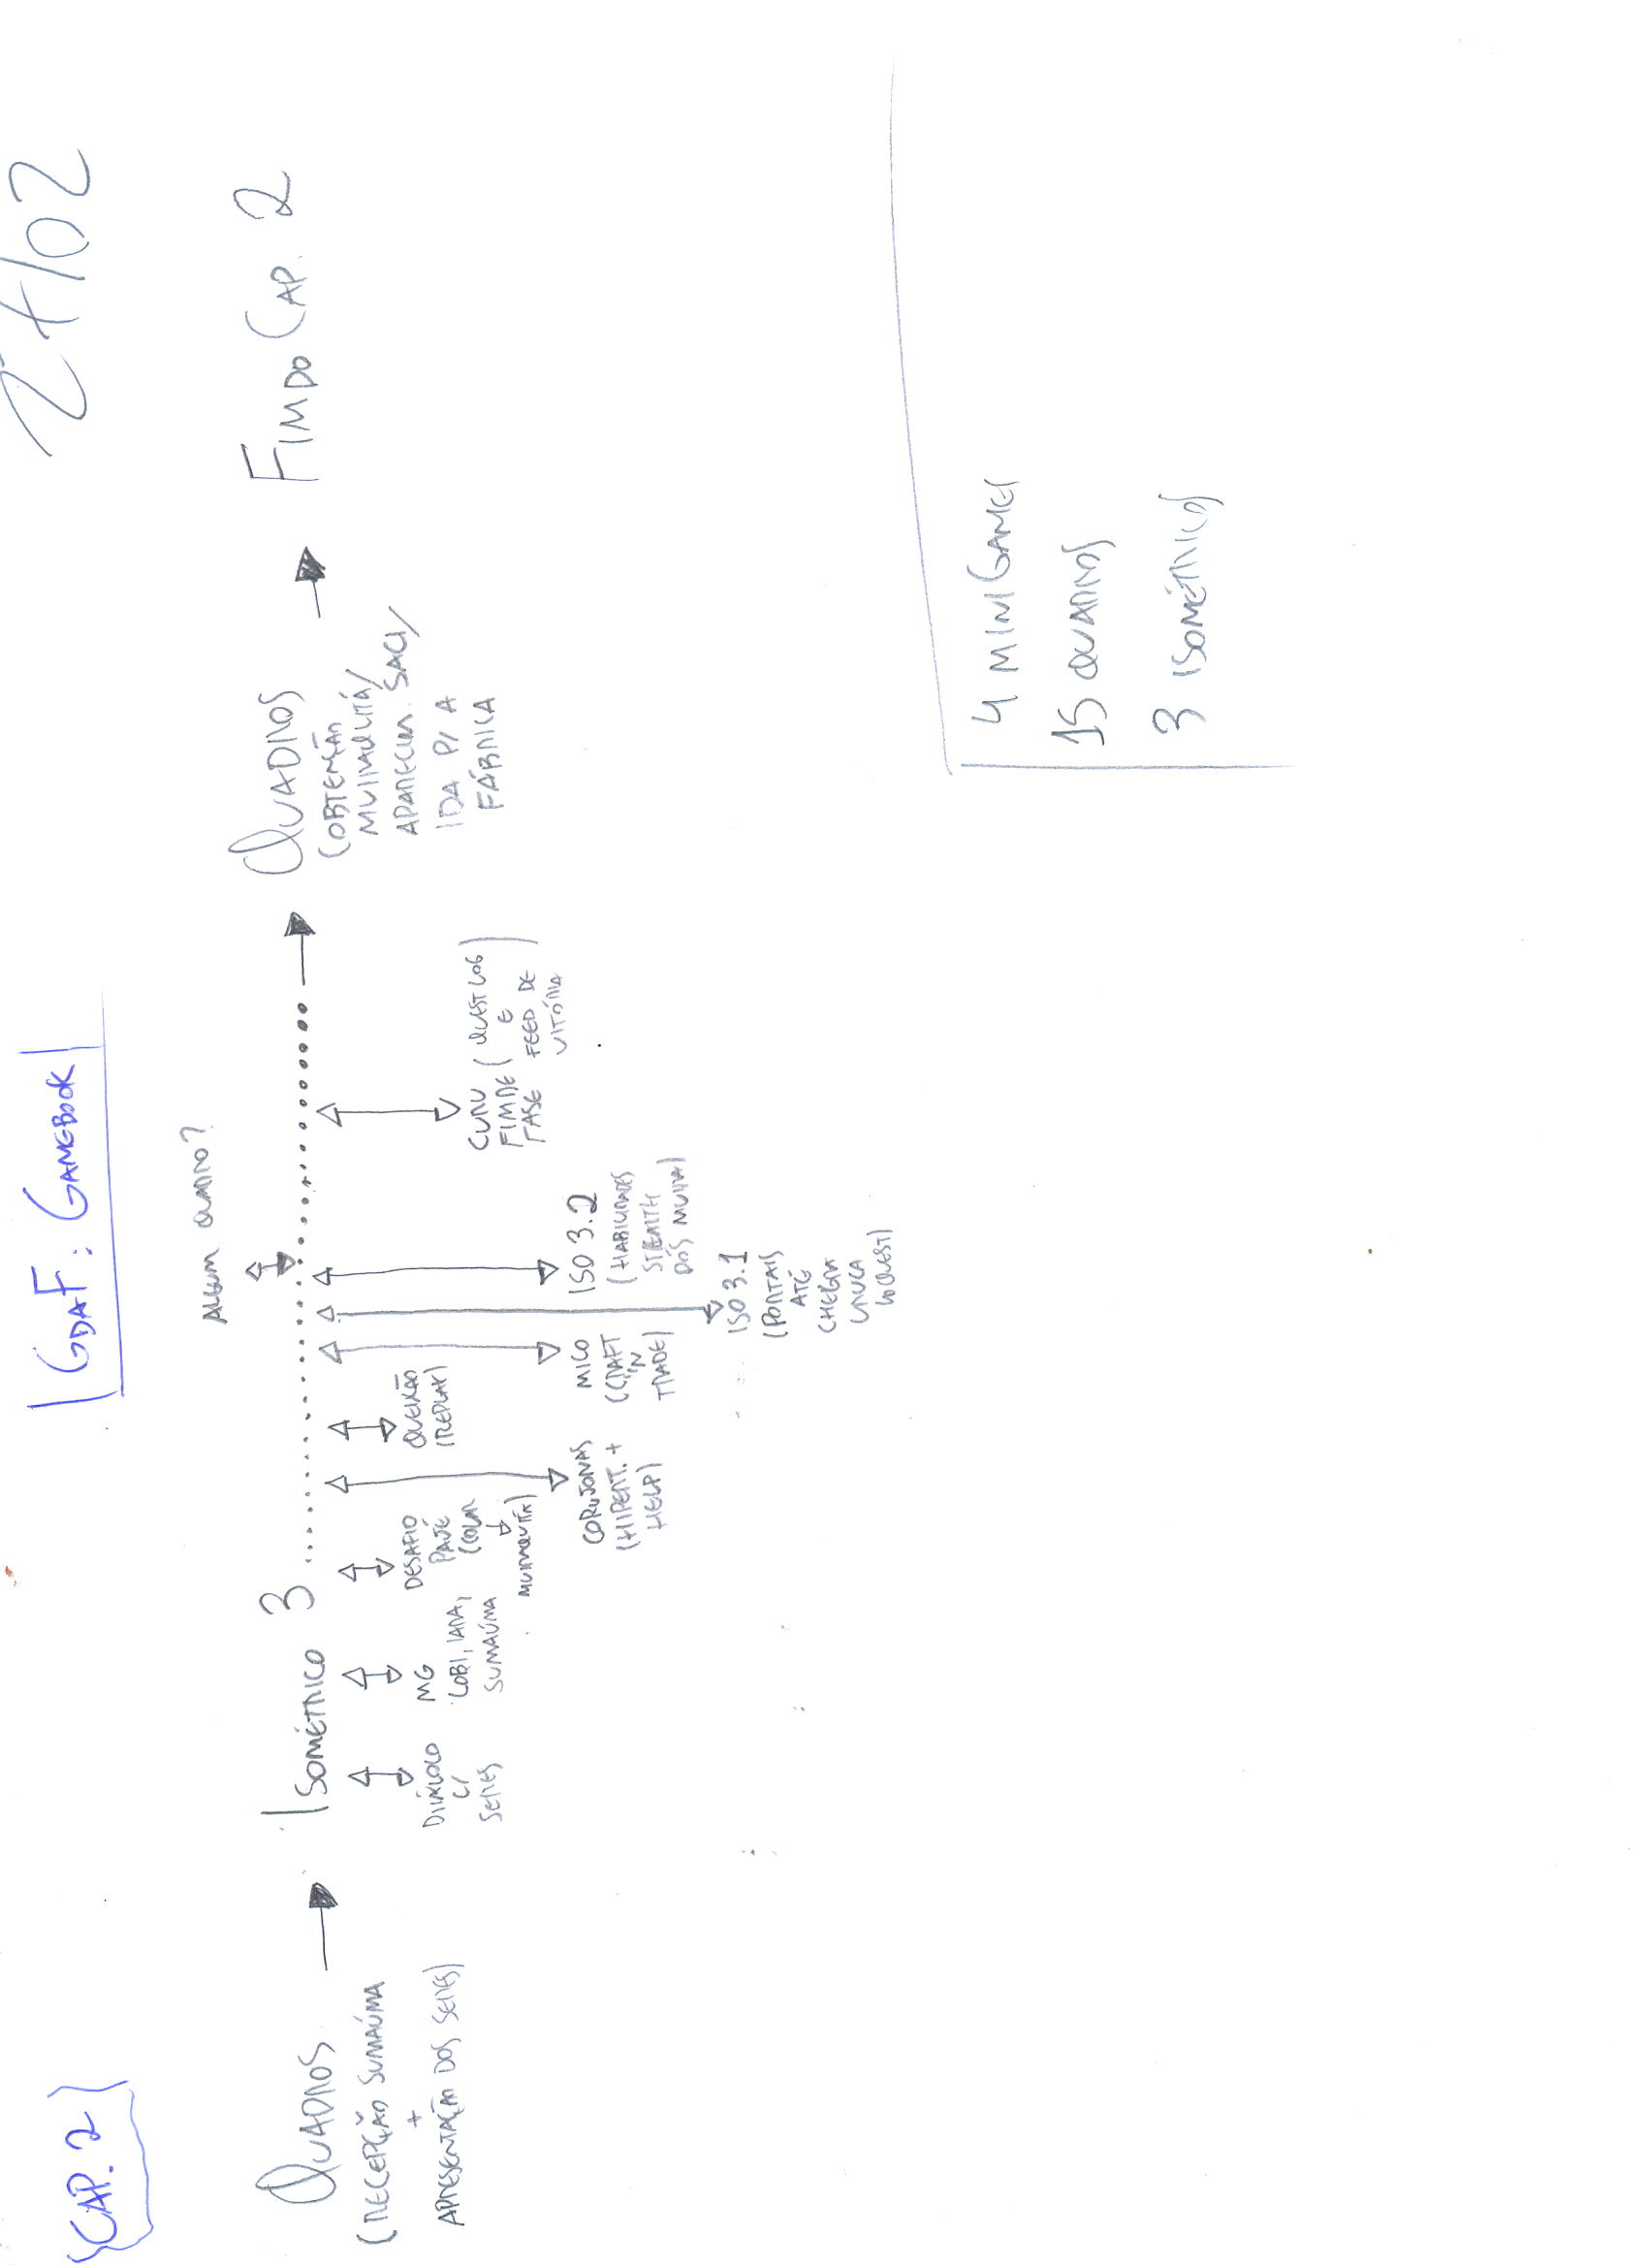 {CAP. 2}
GDAF: GAMEBOOK
27/02
QUADROS
(RECEPÇÃO SUMAÚMA
+
APRESENTAÇÃO DOS SERES)
ISOMÉTRICO 3
ALGUM QUADRO?
DIÁLOGO
C/
SERES
MG
LOBI, IARA,
SUMAÚMA
DESAFIO
PAJÉ
(COLAR
MUIRAQUITÃ)
CORUJONAS
(HIPERT. +
HELP)
QUEIXÃO
(REPLAY)
MICO
(CRAFT
IN
TRADE)
ISO 3.1
(PORTAIS
ATÉ
CHEGAR
ISO 3.2
(HABILIDADES
STEALTH
DOS MUIRA)
CURU
FIM DE
FASE
(QUEST LOG
E
FEED DE
VITÓRIA)
QUADROS
(OBTENÇÃO
MUIRAQUITÃ/
APARECIM. SACI/
IDA P/ A
FÁBRICA
FIM DO CAP. 2
4 MINIGAMES
15 QUADROS
3 ISOMÉTRICOS